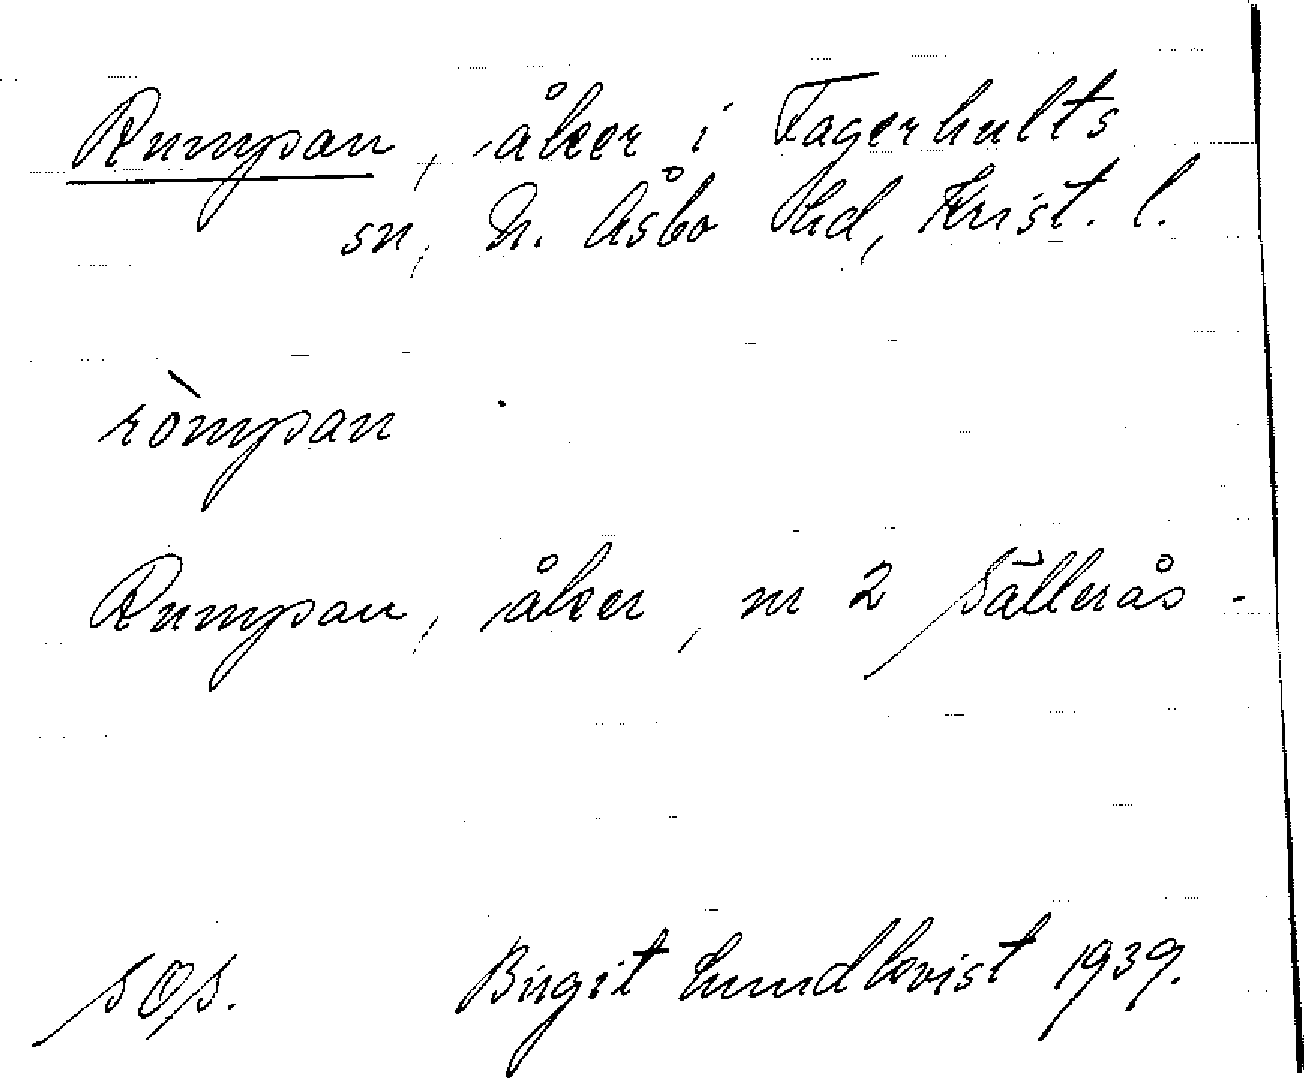 Rumpan, åker i Fagerhults
sn, N. Åsbo hd, Krist. l.
ròmpan
Rumpan, åker, nr 2 Sällerås.
SOS. Birgit Lundkvist 1939.